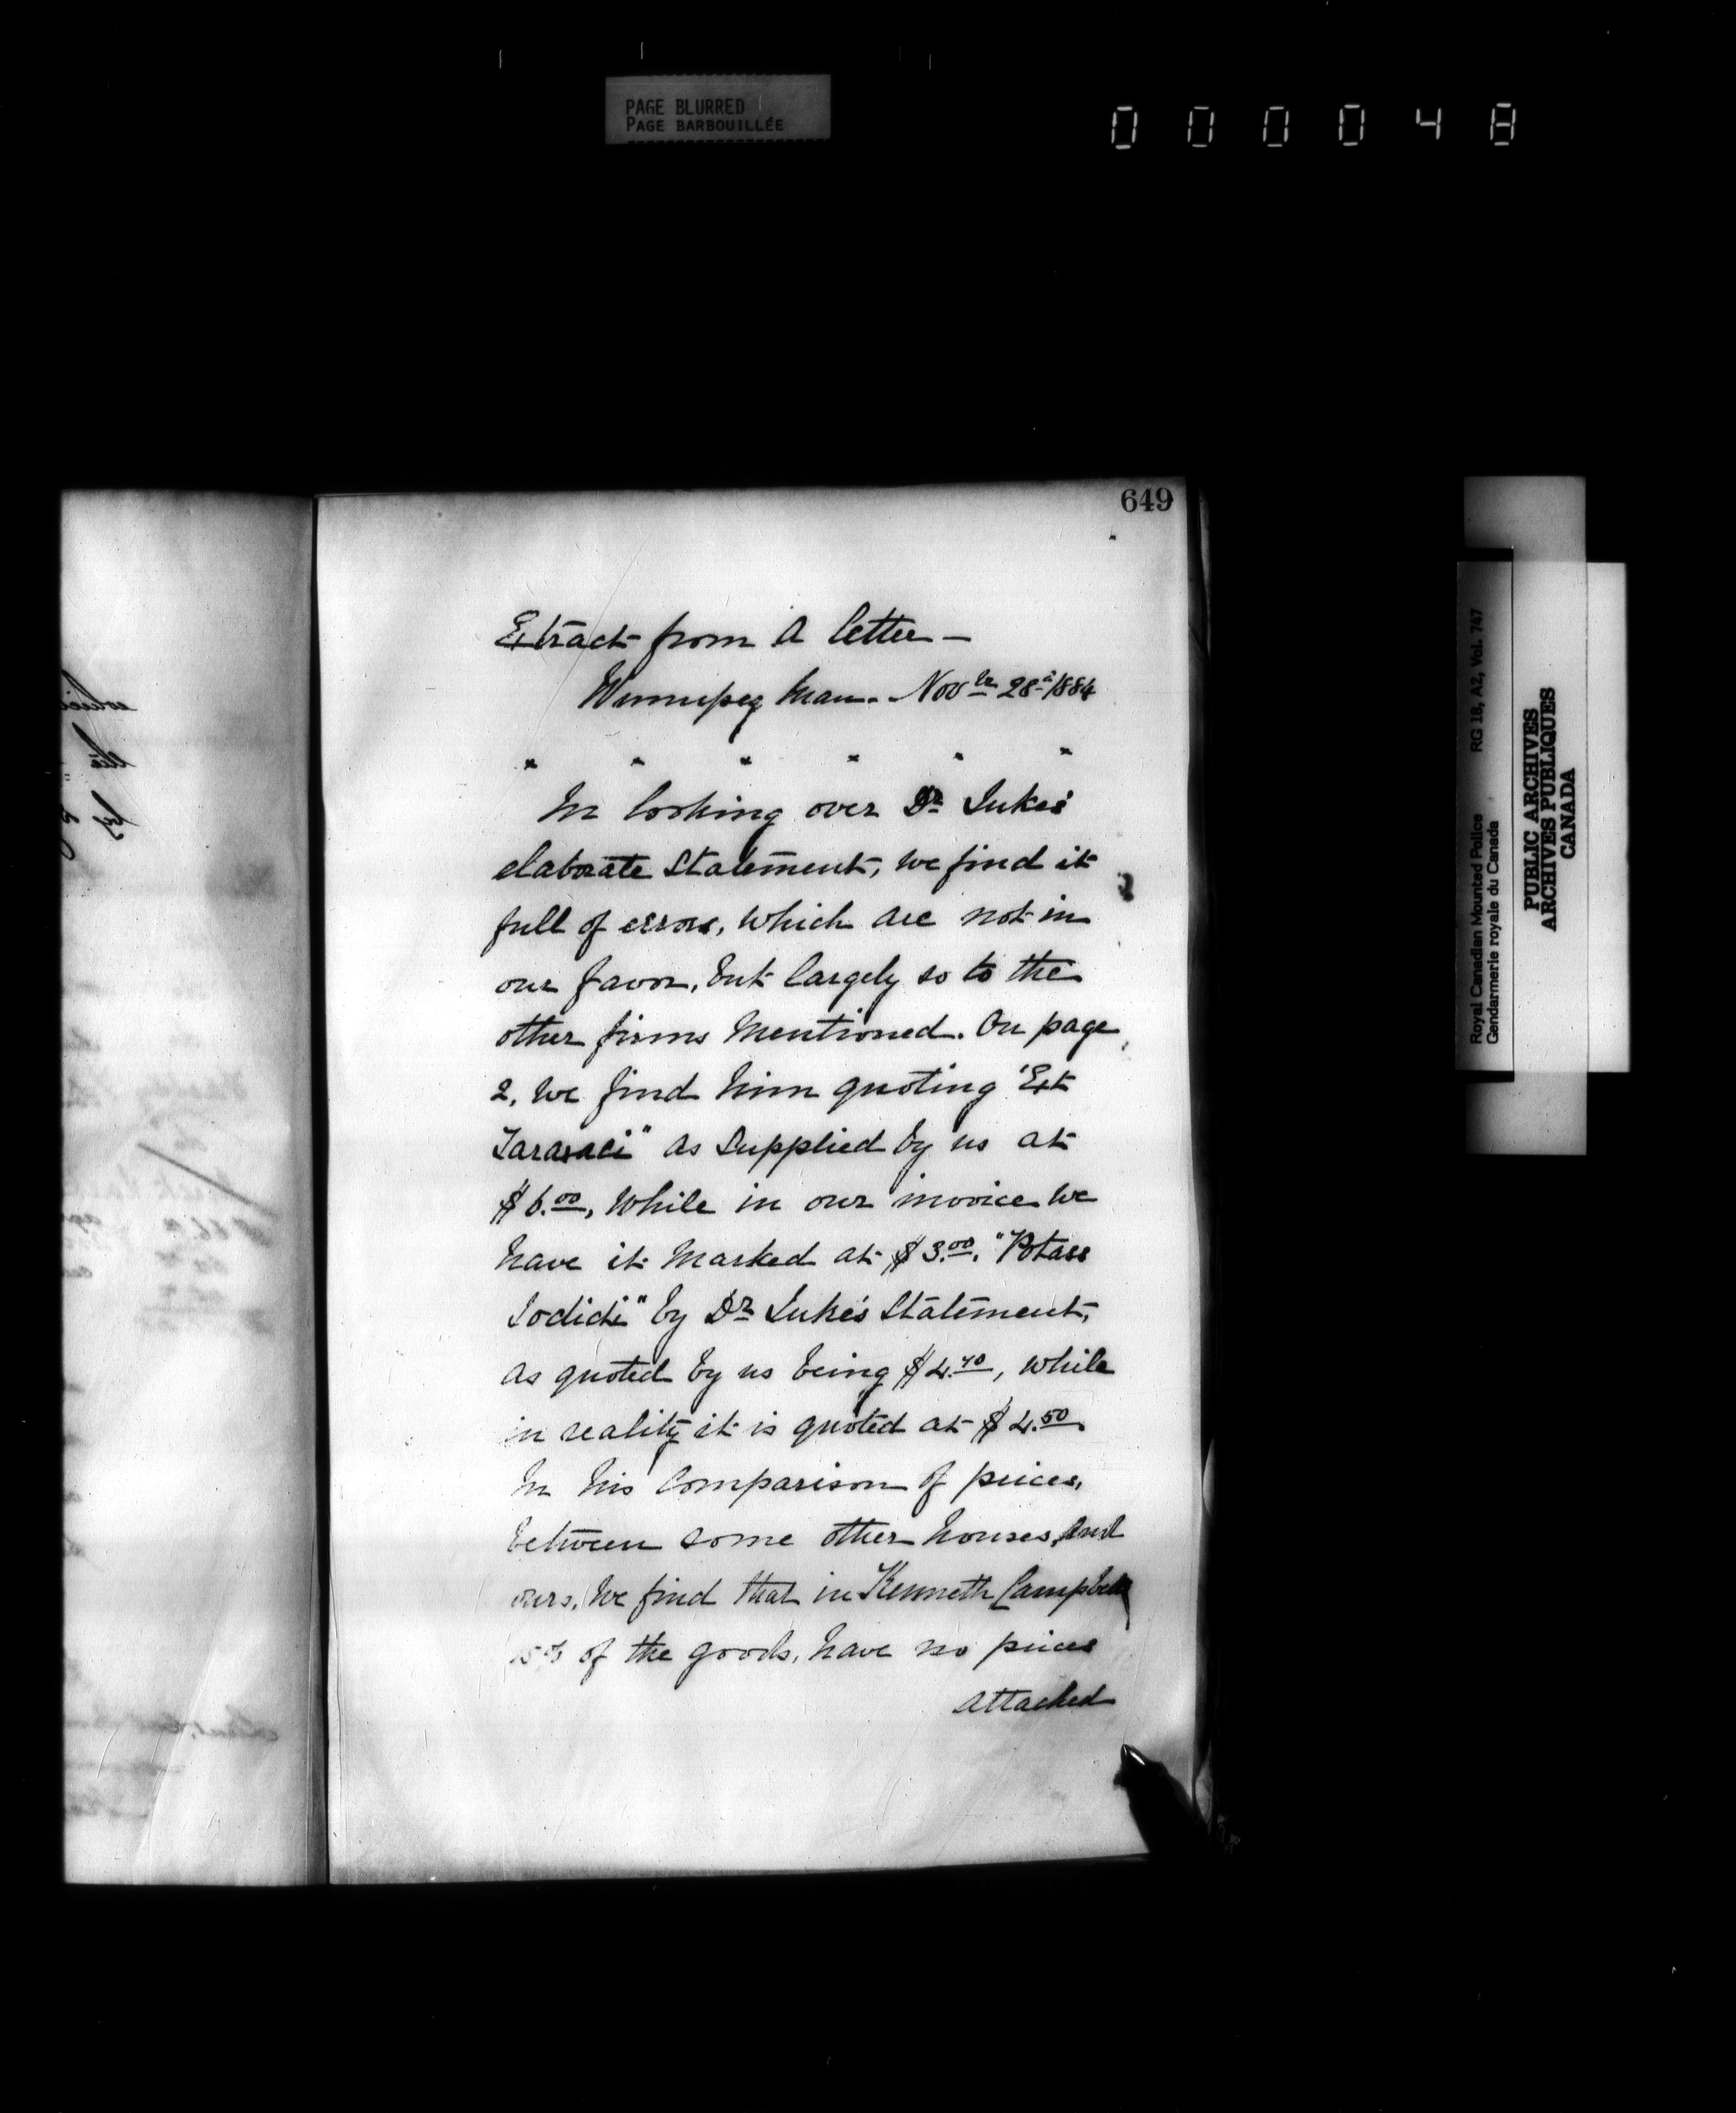 PAGE BLURRED
PAGE BARBOUILLÉE
000048
649
Extract from a letter —
Winnipeg Man. Novbr 28th 1884
" " " " " "
In looking over Dr Jukes'
elaborate Statement, we find it
full of errors, which are not in
our favor, but largely so to the
other firms mentioned. On page
2, we find him quoting "Ext
Taraxaci" as Supplied by us at
$6.00, while in our invoice we
have it marked at $3.00. "Potass
Iodidi" by Dr Jukes Statement,
as quoted by us being $4.40, while
in reality it is quoted at $4.50.
In his Comparison of prices,
between some other houses, and
ours, we find that in Kenneth Campbell
15% of the goods, have no prices
attached
Royal Canadian Mounted Police RG 18, A2, Vol. 747
Gendarmerie royale du Canada
PUBLIC ARCHIVES
ARCHIVES PUBLIQUES
CANADA